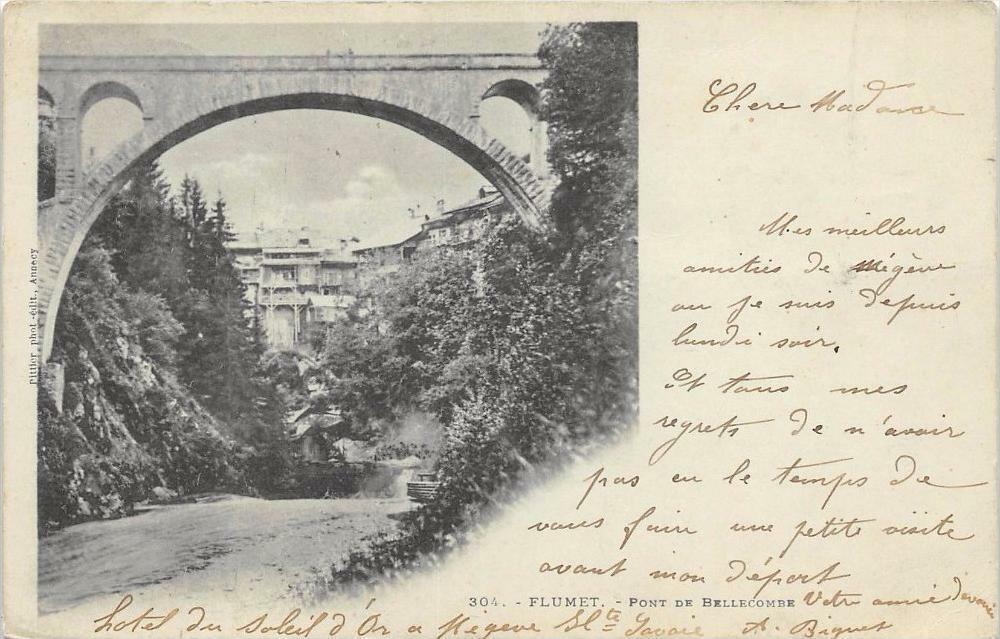 Chere Madame
Mes meilleurs
amitiés de Mégève
ou je suis depuis
lundi soir.
Et tous mes
regrets de n'avoir
pas eu le temps de
vous fair une petite visite
avant mon départ
Votre amie dévouée
A. Biguet
hotel du Soleil d'Or a Mégeve Hte Savoie
304. - FLUMET. - PONT DE BELLECOMBE
Pittier phot.-édit., Annecy